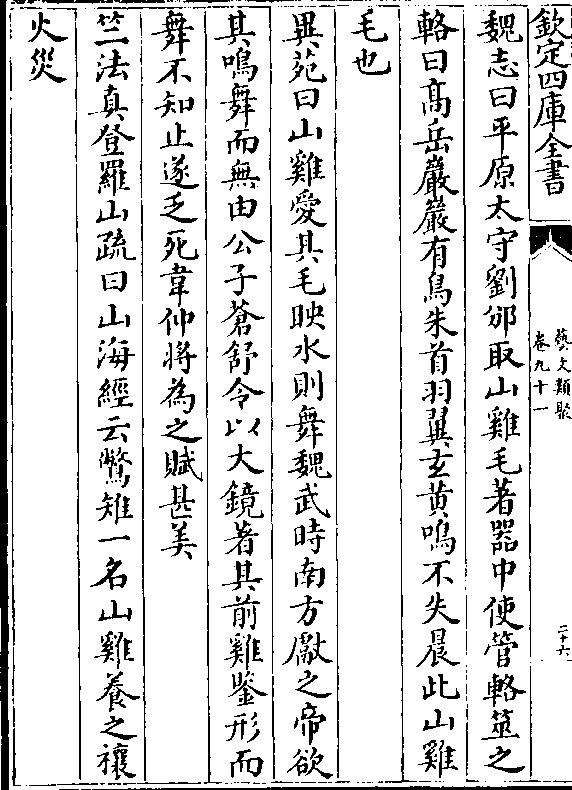 欽定四庫全書
藝文類聚
卷九十一
二十六
魏志曰平原太守劉邠取山雞毛著器中使管輅筮之
輅曰髙岳巖巖有鳥朱首羽翼𤣥黄鳴不失晨此山雞
毛也
異苑曰山雞愛其毛映水則舞魏武時南方獻之帝欲
其鳴舞而無由公子蒼舒令以大鏡著其前雞鑒形而
舞不知止遂乏死韋仲將為之賦甚美
竺法真登羅山疏曰山海經云鷩雉一名山雞養之禳
火災